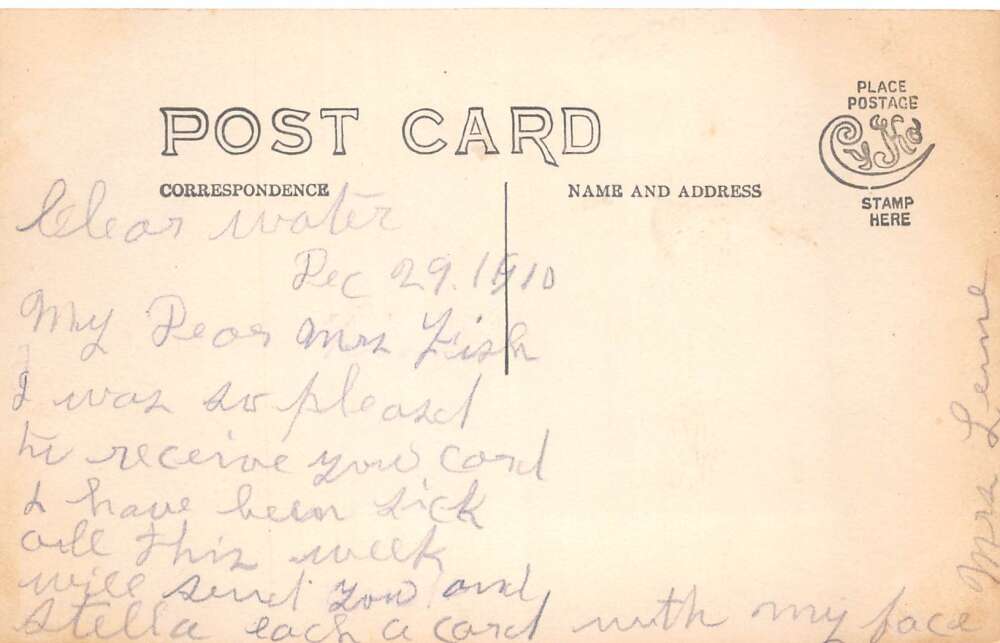 POST CARD
PLACE
POSTAGE
CyKo
STAMP
HERE
CORRESPONDENCE
NAME AND ADDRESS
Clear water
Dec 29. 1910
My Dear Mrs Fish
I was so pleasd
to receive your card
I have been sick
all this week
will send you and
Stella each a card with my face
Mrs